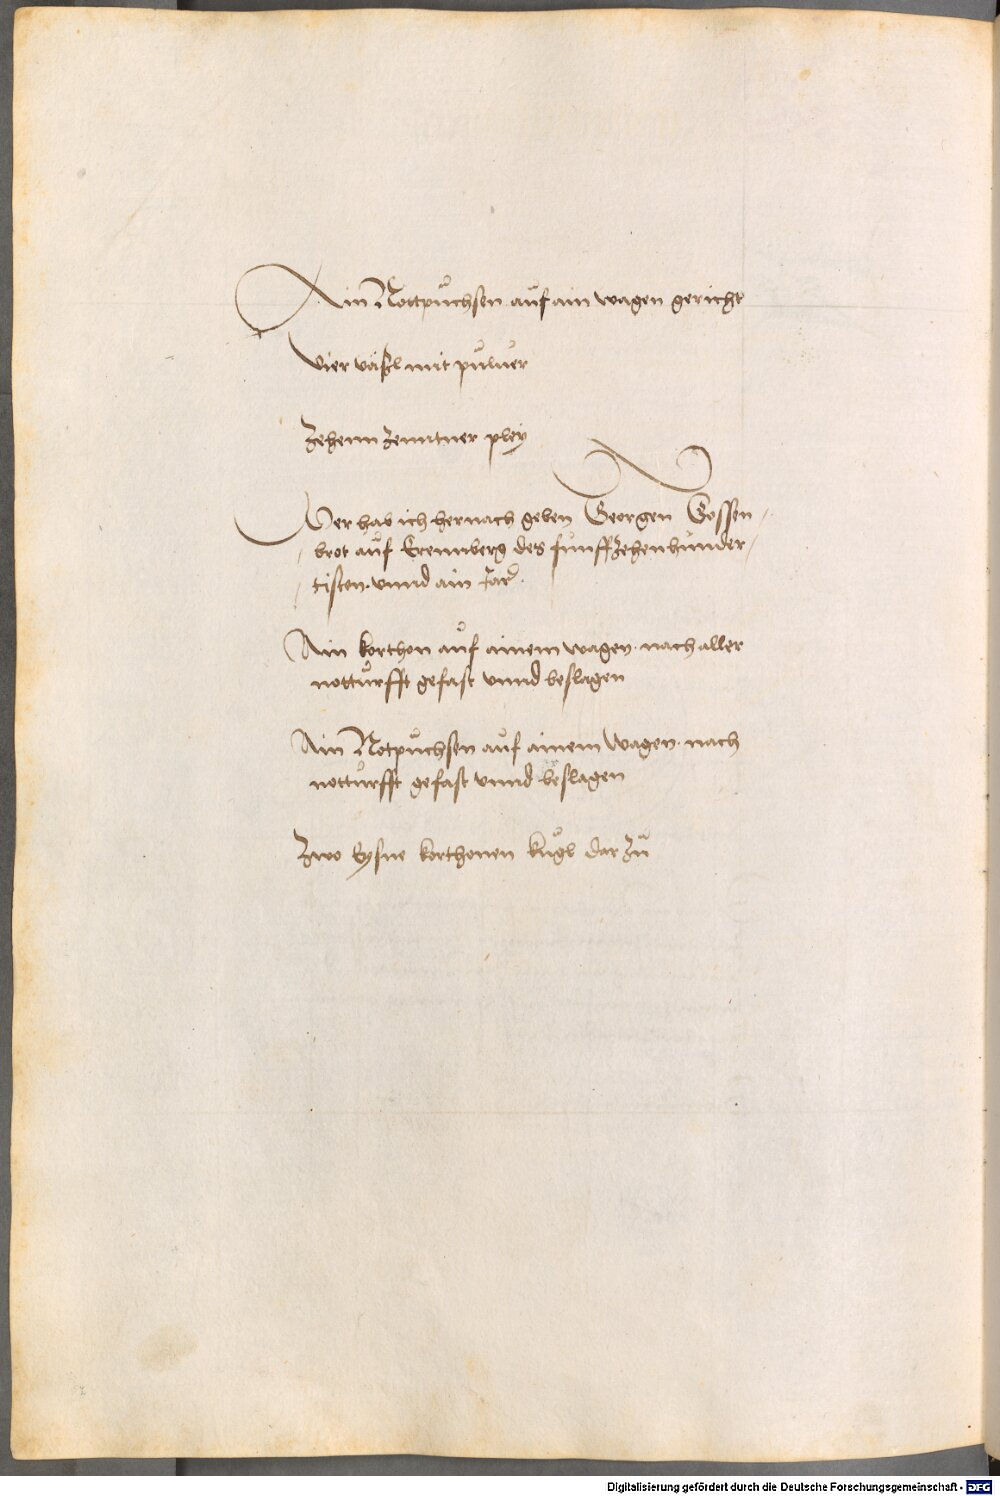 Ain Nottpůchsen auf ain wagen gericht
Vier väßl mit půluer
Zehenn Zenntner pley
Der hab ich hernach geben Georgen Gossen-
brot aůf Erennberg des fůnffzehenhůnder-
tisten vnnd ain Jar.
Ain korthon aůf ainem wagen nach aller
nottůrfft gefast vnnd beslagen
Ain Notpůchsen aůf ainem Wagen nach
nottůrfft gefast vnnd beslagen
Zwo Eysne korthonen kůgl dar Zů
Digitalisierung gefördert durch die Deutsche Forschungsgemeinschaft - DFG